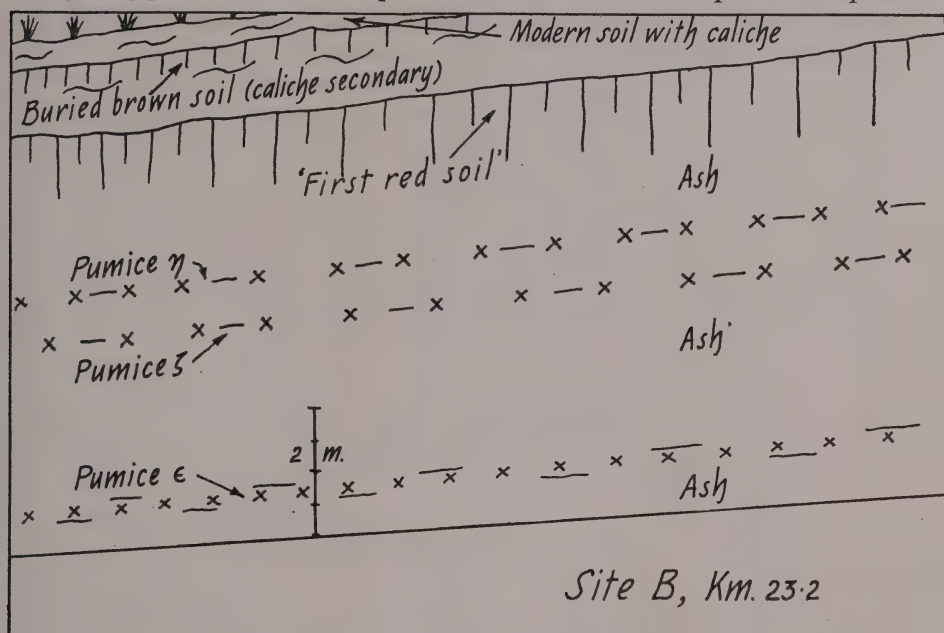 Modern soil with caliche
Buried brown soil (caliche secondary)
'First red soil'
Ash
Pumice η
Pumice ζ
Ash
2 m.
Pumice ε
Ash
Site B, Km. 23·2